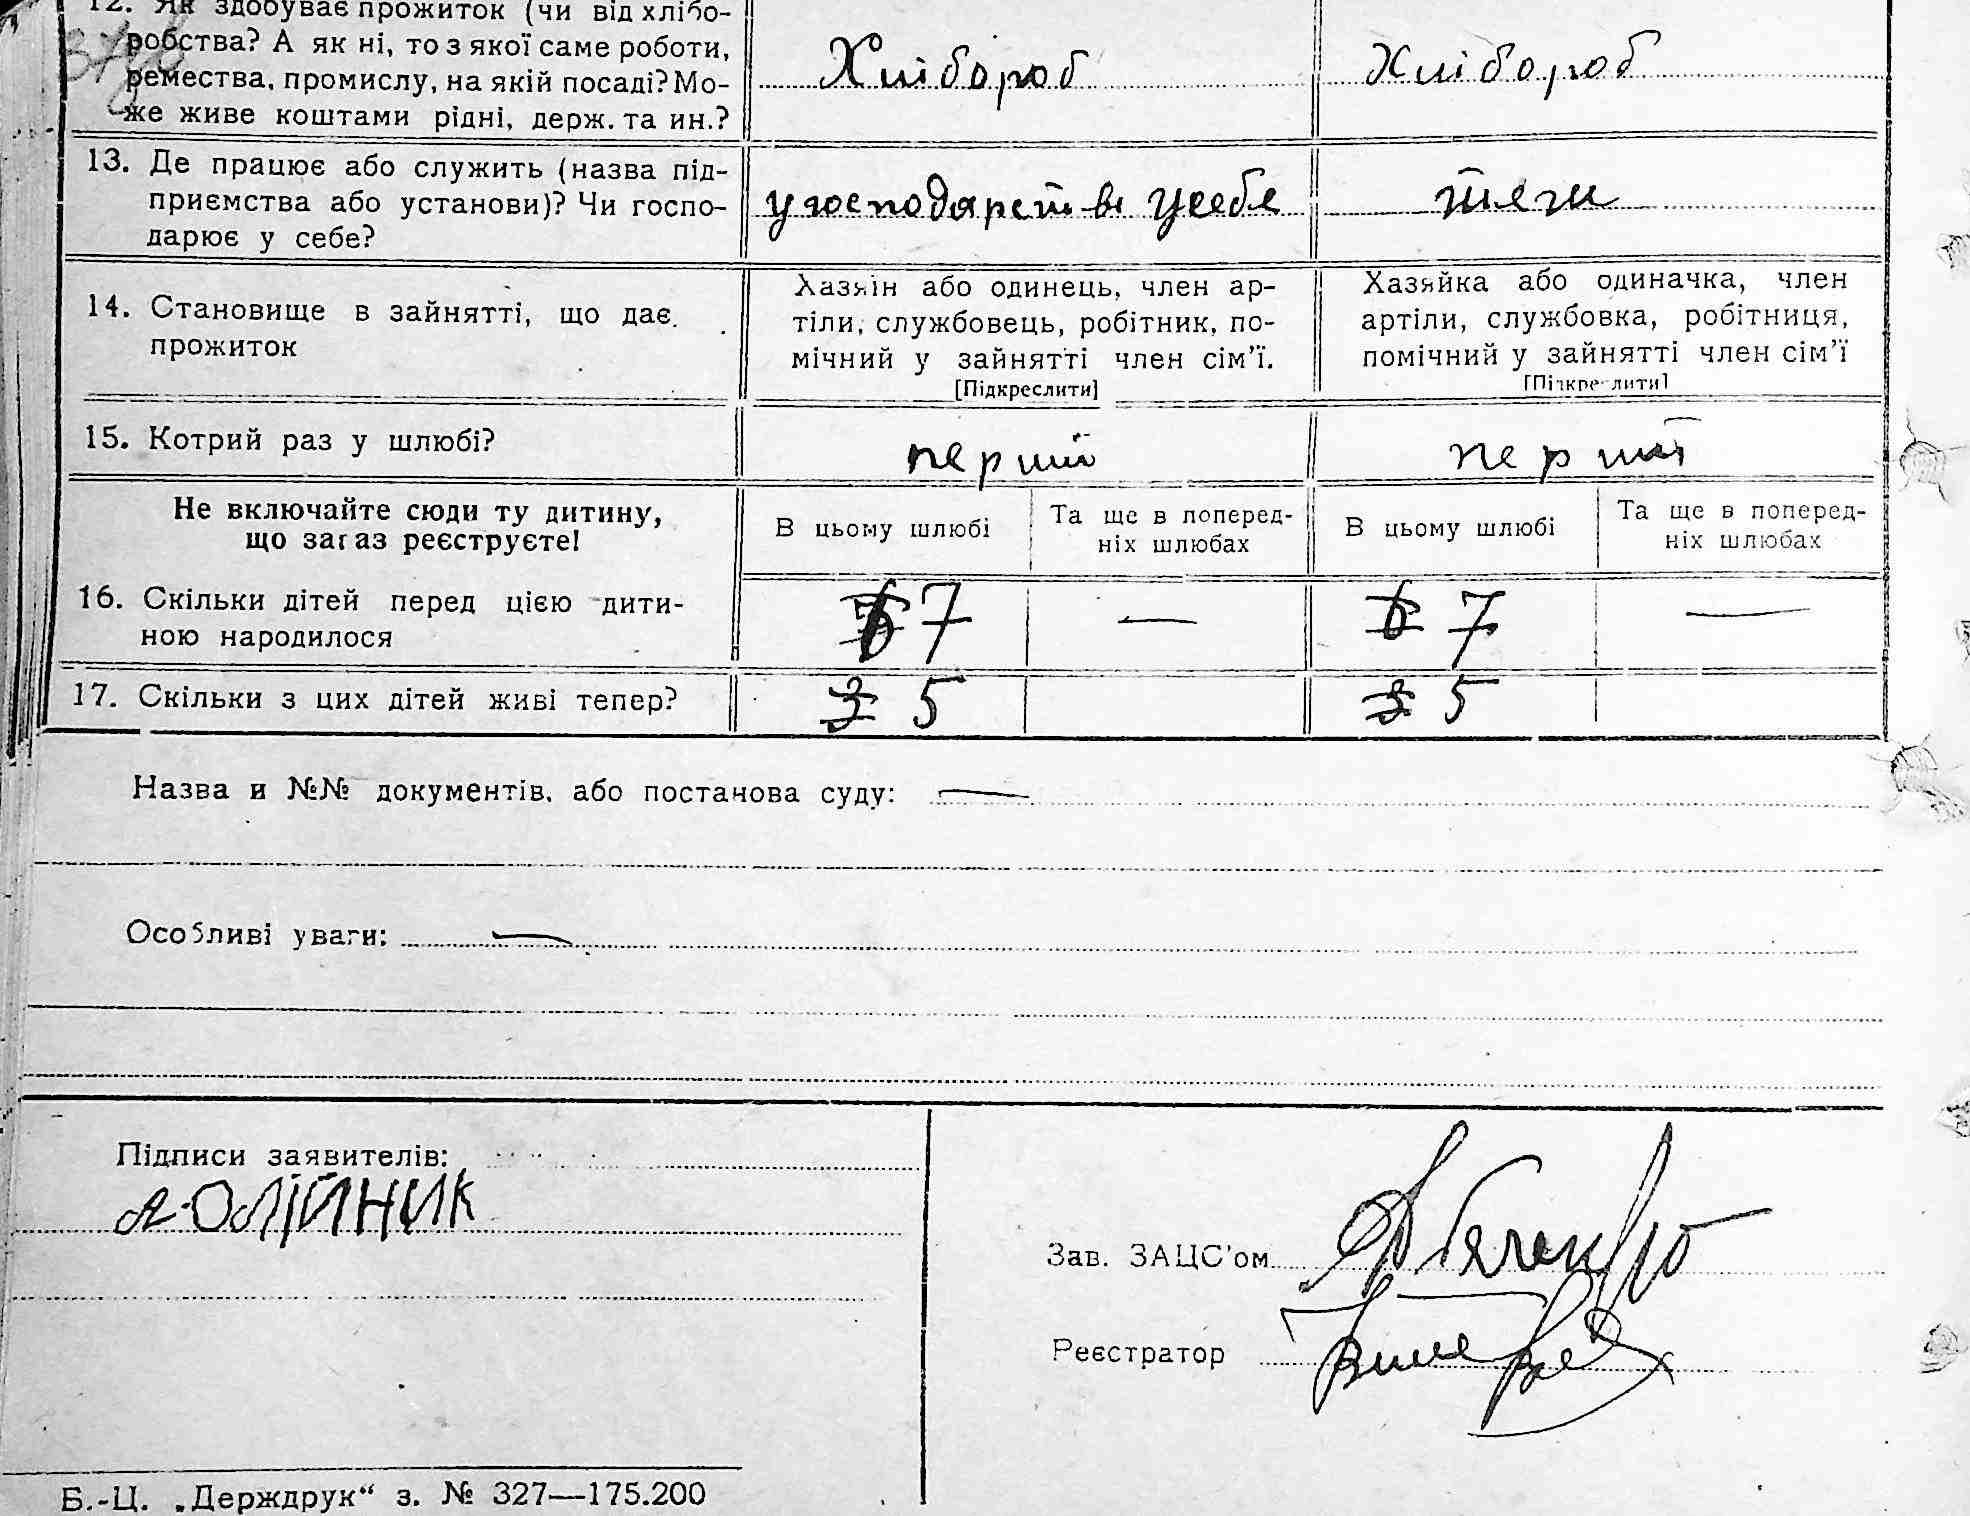 12. Як здобуває прожиток (чи від хлібо-
робства? А як ні, то з якої саме роботи,
ремества, промислу, на якій посаді? Мо-
же живе коштами рідні, держ. та ин.?
Хлібороб
Хлібороб
13. Де працює або служить (назва під-
приємства або установи)? Чи госпо-
дарює у себе?
у господарстві у себе
тяги
14. Становище в зайнятті, що дає
прожиток
Хазяїн або одинець, член ар-
тіли, службовець, робітник, по-
мічний у зайнятті член сім'ї.
[Підкреслити]
Хазяйка або одиначка, член
артіли, службовка, робітниця,
помічний у зайнятті член сім'ї
[Підкреслити]
15. Котрий раз у шлюбі?
перший
перший
Не включайте сюди ту дитину,
що зараз реєструєте!
В цьому шлюбі
Та ще в поперед-
ніх шлюбах
В цьому шлюбі
Та ще в поперед-
ніх шлюбах
16. Скільки дітей перед цією дити-
ною народилося
7 —
6 7 —
17. Скільки з цих дітей живі тепер?
3 5
3 5
Назва и №№ документів, або постанова суду: —
Особливі уваги: —
Підписи заявителів:
А-ОЛІЙНИК
Зав. ЗАЦС'ом
Реєстратор
Б.-Ц. „Держдрук“ з. № 327—175.200